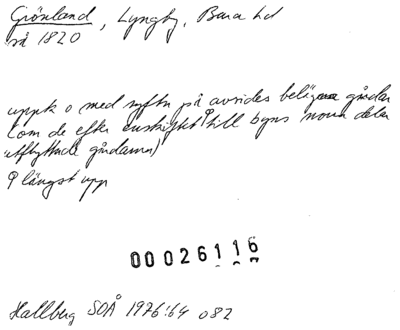 Grönland, Lyngby, Bara hd
så 1820
uppk o med syftn på avsides belägna gårdar
(om de efter enskiftet ⁹till byns norra delar
utflyttade gårdarna)
⁹ längst upp
00026116
Hallberg SOÅ 1976:64 o 82